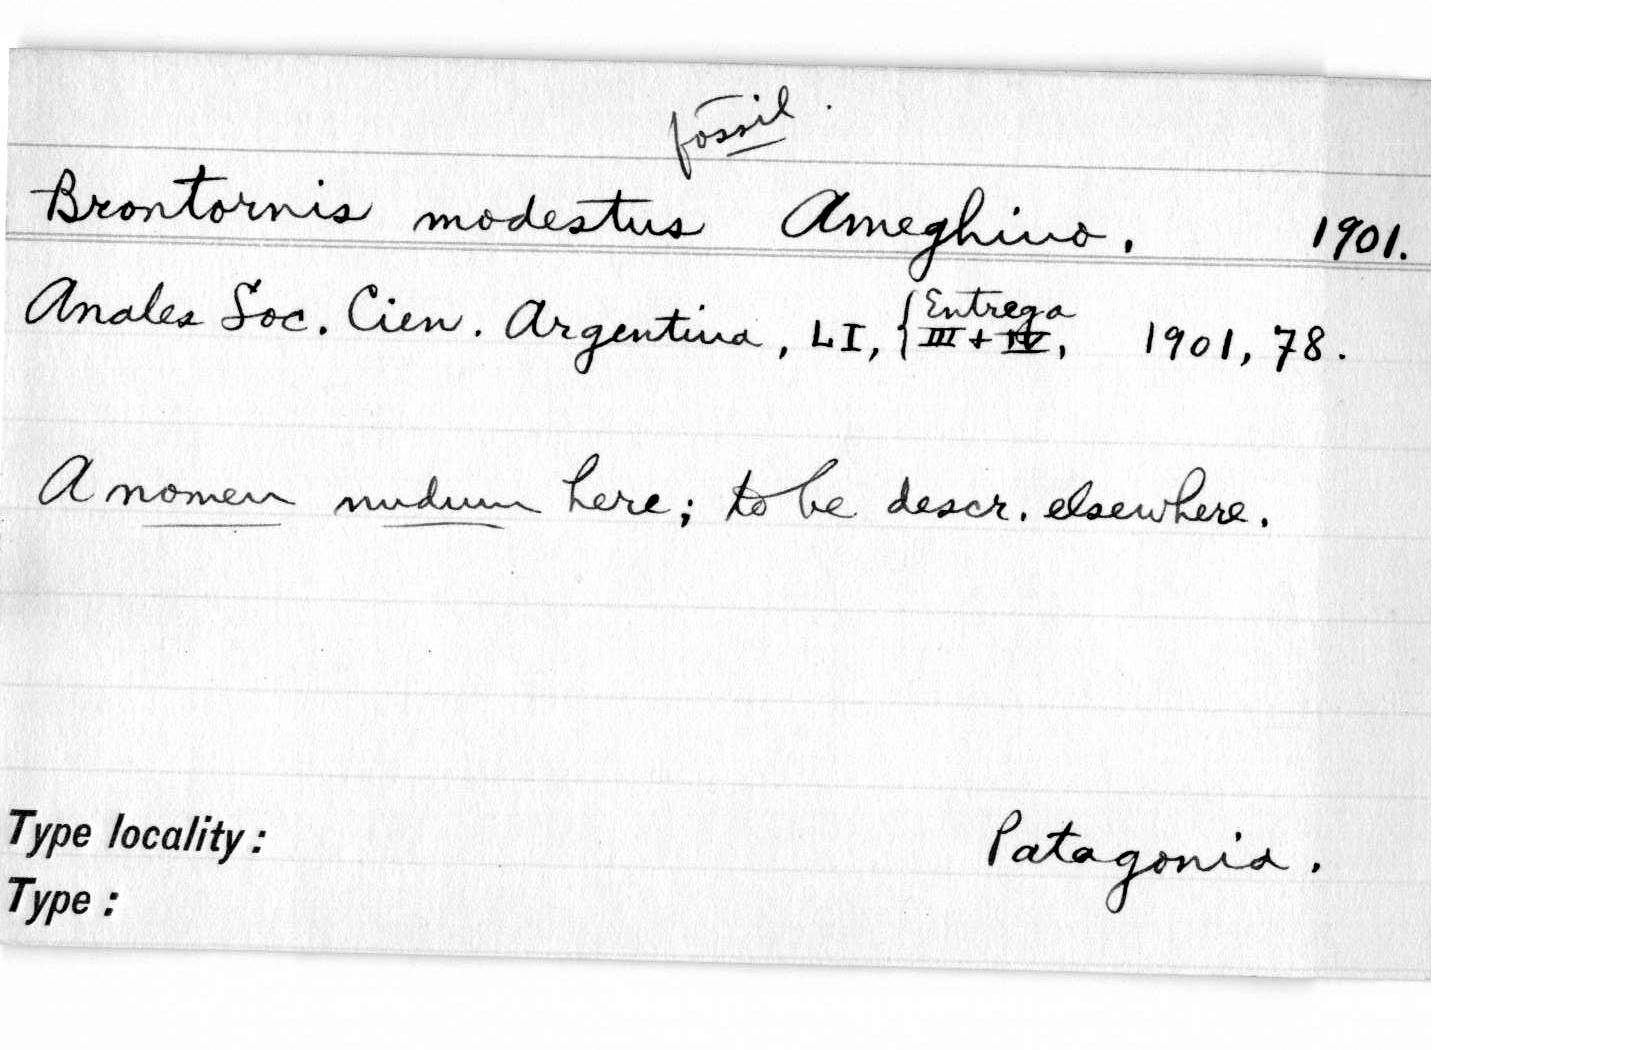 fossil.
Brontornis modestus Ameghino. 1901.
Anales Soc. Cien. Argentina, LI, { Entrega III + IV, 1901, 78.
A nomen nudum here; to be descr. elsewhere.
Type locality: Patagonia.
Type: